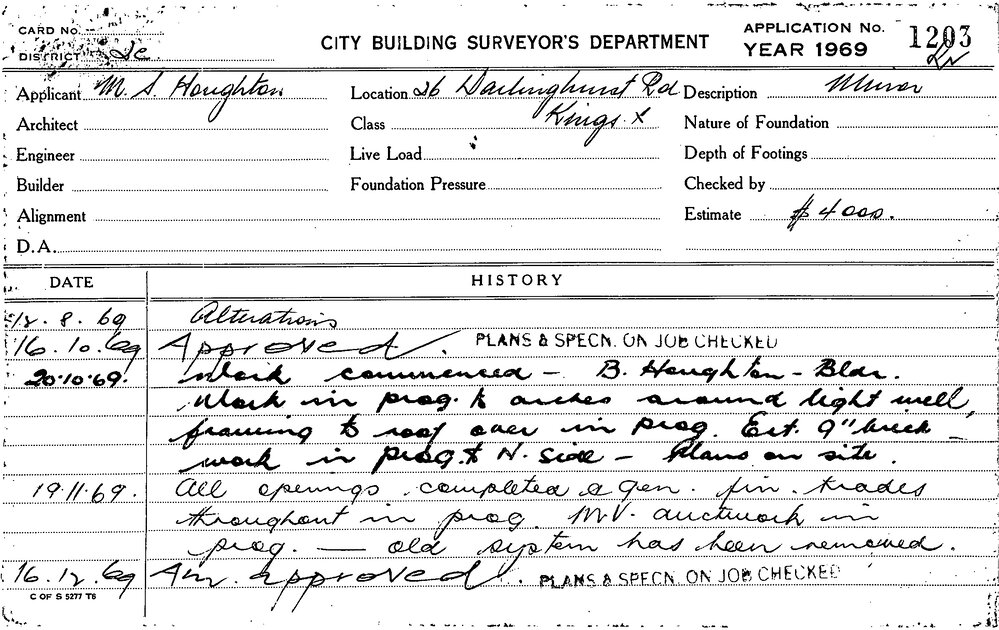 CARD No.
DISTRICT 2c
CITY BUILDING SURVEYOR'S DEPARTMENT
APPLICATION No. 1203
YEAR 1969
Applicant M. S. Houghton
Location 26 Darlinghurst Rd
Kings X
Description Minor
Architect
Class
Nature of Foundation
Engineer
Live Load
Depth of Footings
Builder
Foundation Pressure
Checked by
Alignment
Estimate $4000.
D.A.
DATE HISTORY
12.8.69 Alterations
16.10.69 Approved. PLANS & SPECN. ON JOB CHECKED
20.10.69. Work commenced - B. Houghton - Bldr.
Work in prog. to arches around light well,
framing to roof over in prog. Ext. 9" brick-
work in prog. to N. side - Plans on site.
19.11.69. All openings completed & gen. fin. trades
throughout in prog. M.V. ductwork in
prog. — old system has been removed.
16.12.69 Am. approved. PLANS & SPECN. ON JOB CHECKED
C OF S 5277 T8